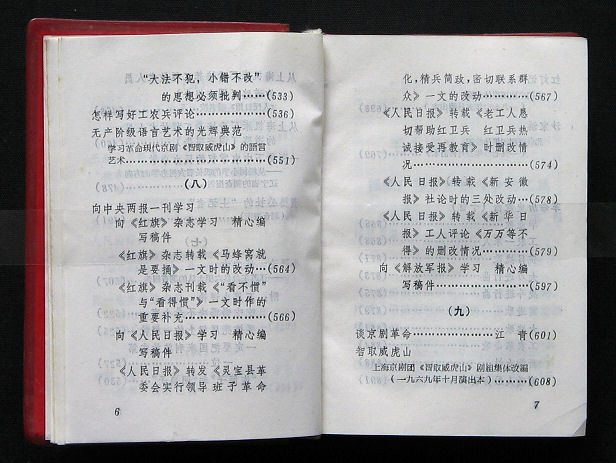 “大法不犯，小错不改”
的思想必须批判……(533)
怎样写好工农兵评论……(536)
无产阶级语言艺术的光辉典范
学习革命现代京剧《智取威虎山》的語言
艺术……(551)
（八）
向中央两报一刊学习
向《红旗》杂志学习 精心编
写稿件
《红旗》杂志转载《马蜂窝就
是要捅》一文时的改动……(564)
《红旗》杂志刊载《“看不惯”
与“看得惯”》一文时作的
重要补充……(566)
向《人民日报》学习 精心编
写稿件
《人民日报》转发《灵宝县革
委会实行领导班子革命
6
化，精兵简政，密切联系群
众》一文的改动……(567)
《人民日报》转载《老工人恳
切帮助红卫兵 红卫兵热
诚接受再教育》时删改情
况……(574)
《人民日报》转载《新安徽
报》社论时的三处改动…(578)
《人民日报》转载《新华日
报》工人评论《万万等不
得》的删改情况……(579)
向《解放军报》学习 精心编
写稿件……(597)
（九）
谈京剧革命……江 青(601)
智取威虎山
上海京剧团《智取威虎山》剧组集体改编
(一九六九年十月演出本)……(608)
7